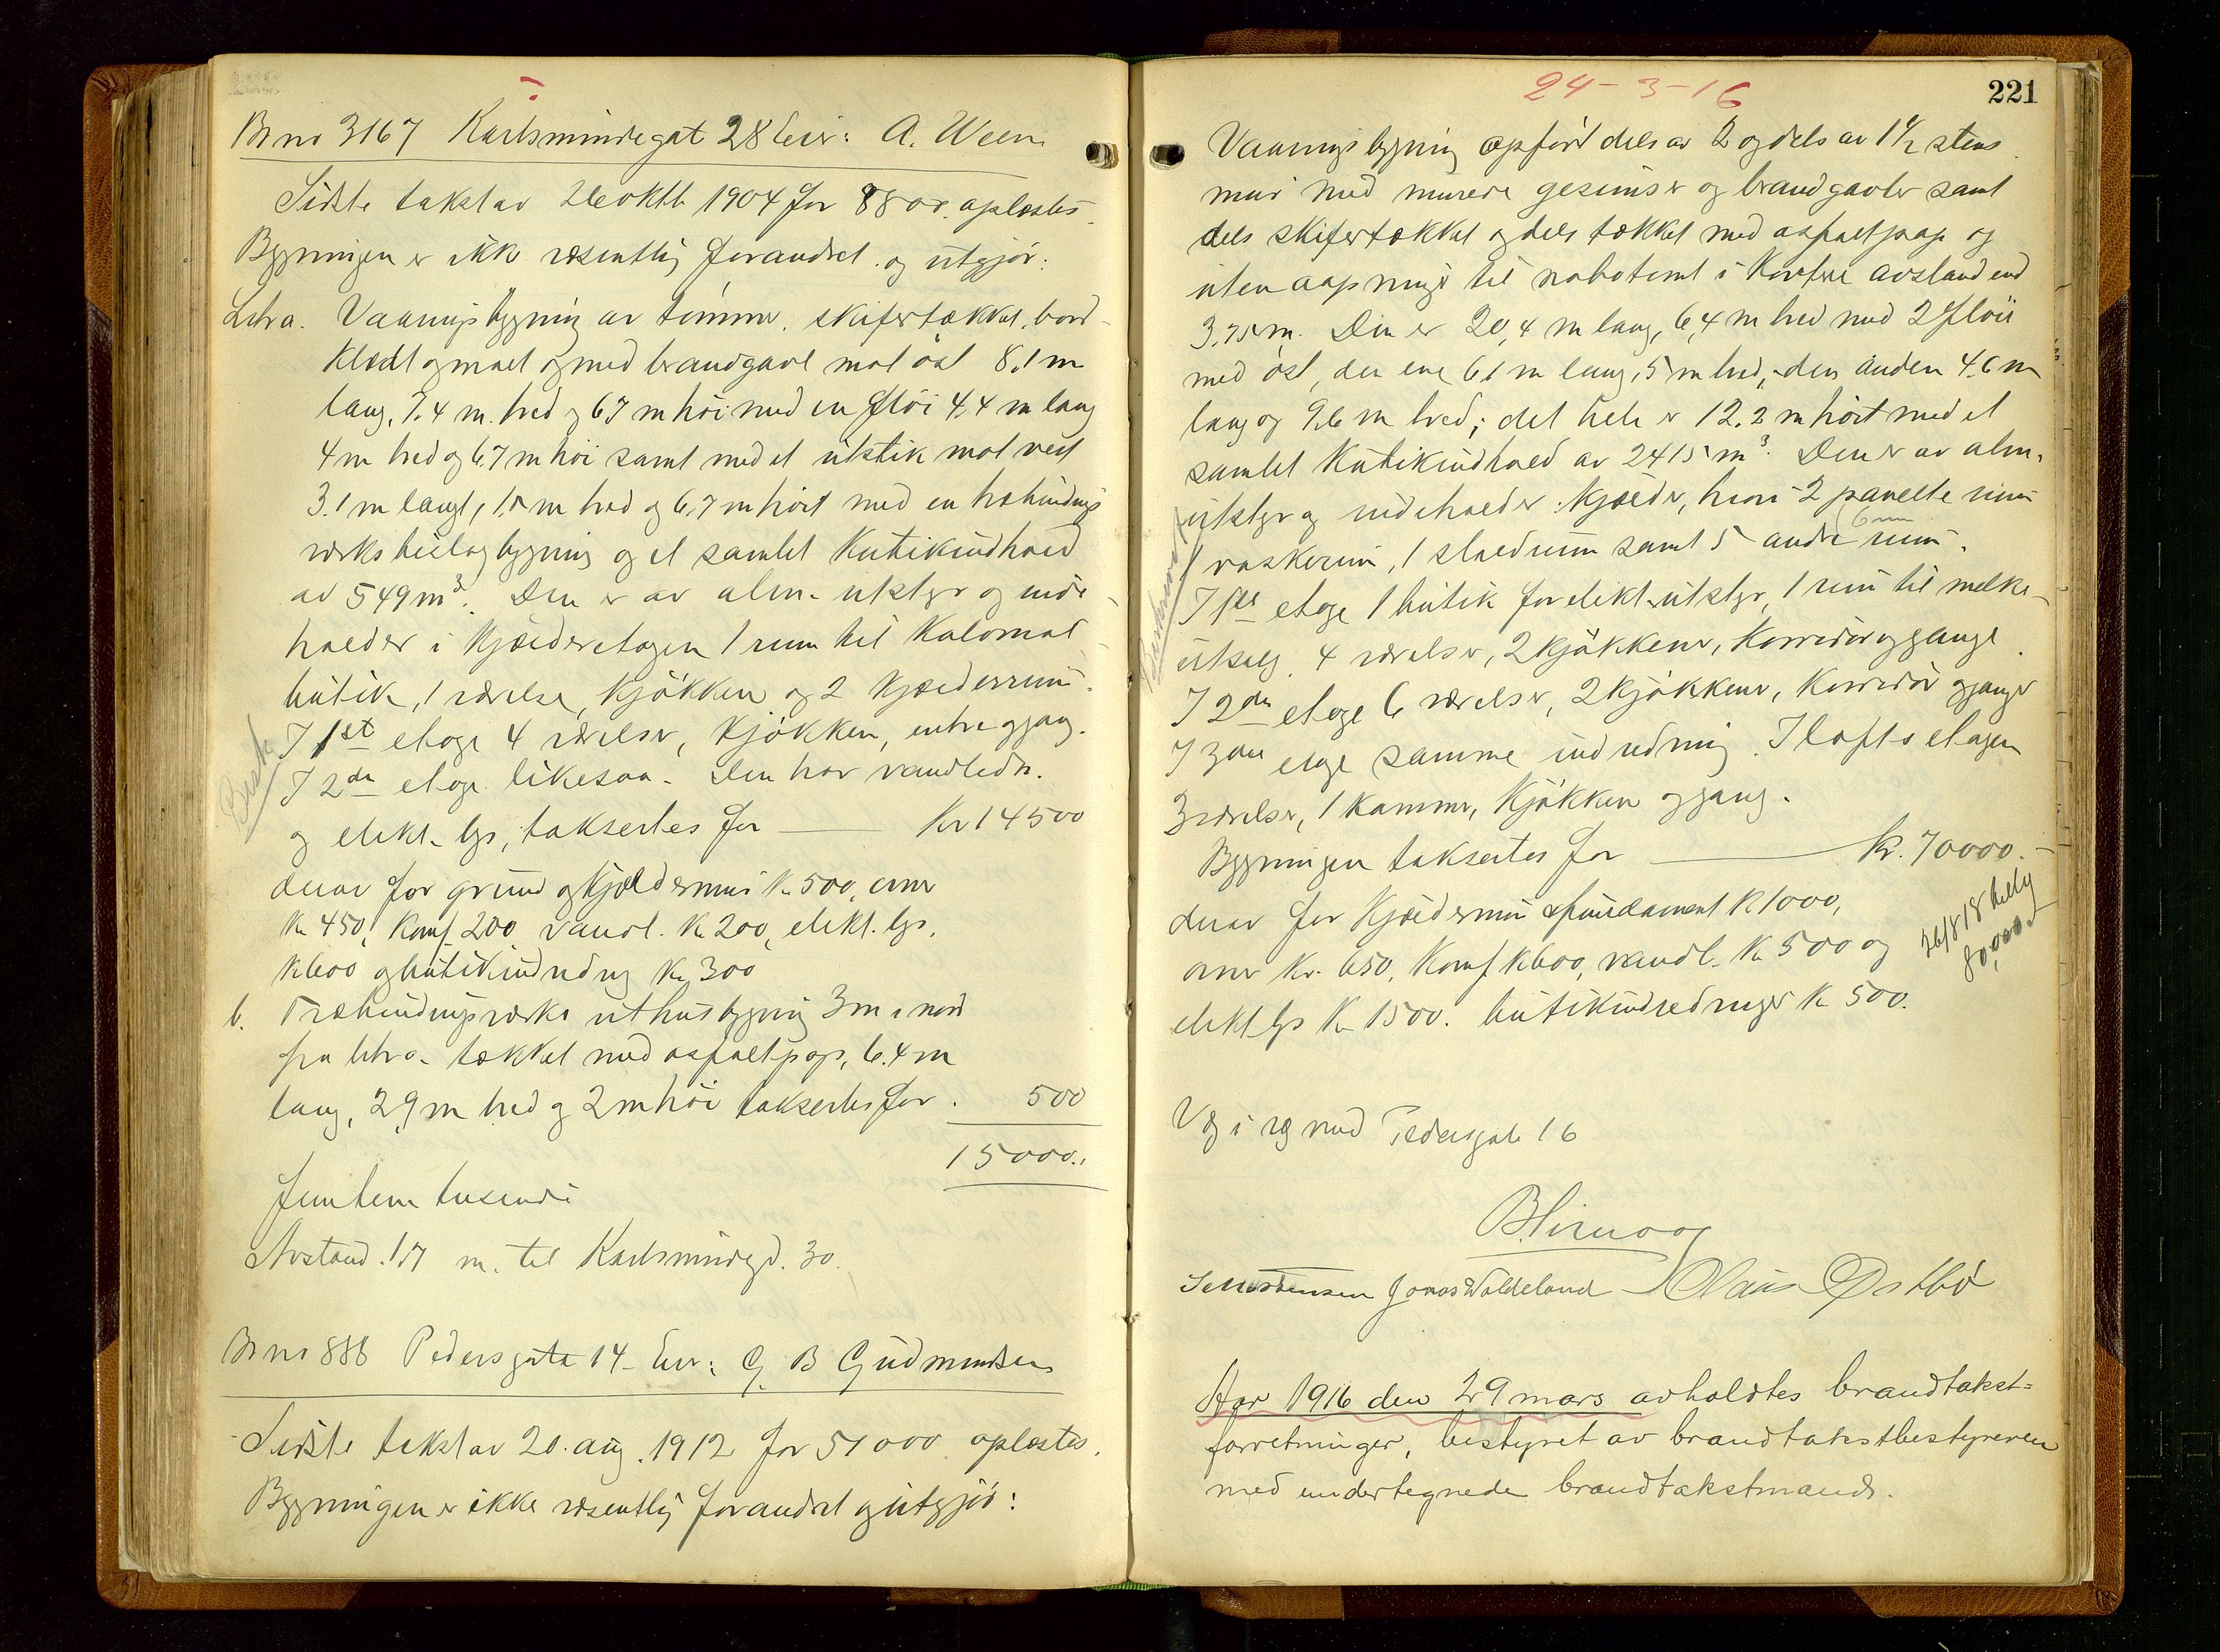 Br no 3167 Karlsmindegat 28 Eier: A. Ween
Sidste takst av 26 oktb 1904 for 8800. oplæstes.
Bygningen er ikke væsentlig forandret og utgjør:
Litra. Vaaningsbygning av tømmer, skifertækket, bord-
klædt og malt og med brandgavl mot øst 8,1 m
lang, 7,4 m. bred og 6,7 m høi med en fløi 4,4 m lang
4 m bred og 6,7 m høi samt med et utstik mot vest
3,1 m langt, m bred og 6,7 m høit med en træbindings
verks beslagbygning og et samlet kubikindhold
av 549 m³. Den er av alm. utstyr og inde-
holder i kjælderetagen 1 rum til kolonial
butik, 1 værelse, kjøkken og 2 kjælderrum.
I 1st etage 4 værelser, kjøkken, entre og gang.
I 2den etage likesaa. Den har vandledn.
og elekt. lys, takseres for kr 14500
derav for grund og kjældermur k 500, ovner
Kr 450, komf 200 vandl. Kr 200, elekt. lys.
K 600 og butikindredng Kr 300
b. Træbindingsverks uthusbygning 3 m i nord
fra litra a tækket med asfaltpap, 6,4 m
lang, 2,9 m bred og 2 m høi takseres for . 500
15000.,
femten tusende
Avstand 1,7 m. til Karlsmindegd. 30.
Br no 888 Pedersgata 14 Eier: G. B Gudmundsen
Sidste takst av 20. aug. 1912 for 51000 oplæstes.
Bygningen er ikke væsentlig forandret og utgjør:
24-3-16
221
Vaaningsbygning opført dels av 2 og dels av 1½ stens
mur med murede gesimser og brandgavler samt
dels skifertækket og dels tækket med asfaltpap og
uten aapninger til nabotomt i kortere avstand end
3,75 m. Den er 20,4 m lang, 6,4 m bred med 2 fløie
med øst, den ene 6,1 m lang, 5 m bred, den anden 4,6 m
lang og 9,6 m bred; det hele er 12,2 m høit med et
samlet kubikindhold av 2415 m³. Den er av alm.
utstyr og indeholder kjælder, hvori 2 panelte rum
1 vaskerum, 1 stald rum samt 5 andre rum.
I 1ste etage 1 butik for elekt. utstyr, 1 rum til melke-
utsalg, 4 værelser, 2 kjøkkener, korridor og gange.
I 2den etage 6 værelser, 2 kjøkkener, korridor og gange
I 3die etage samme indredning. I loftsetagen
3 værelser, 1 kammer, kjøkken og gang.
Bygningen takseres for kr. 70000.-
derav for kjældermur & fundament k 1000,
ovner kr. 650, komf k 600, vandl. Kr 500 og
elekt lys Kr 1500. butikindredninger Kr 500.
26/8 18 
80,000.
Væg i væg med Pedersgate 16
S. Mortensen Jonas Waldeland Claus Østbø
Aar 1916 den 29 mars avholdtes brandtakst=
forretninger, bestyret av brandtakstbestyreren
med undertegnede brandtakstmænd.